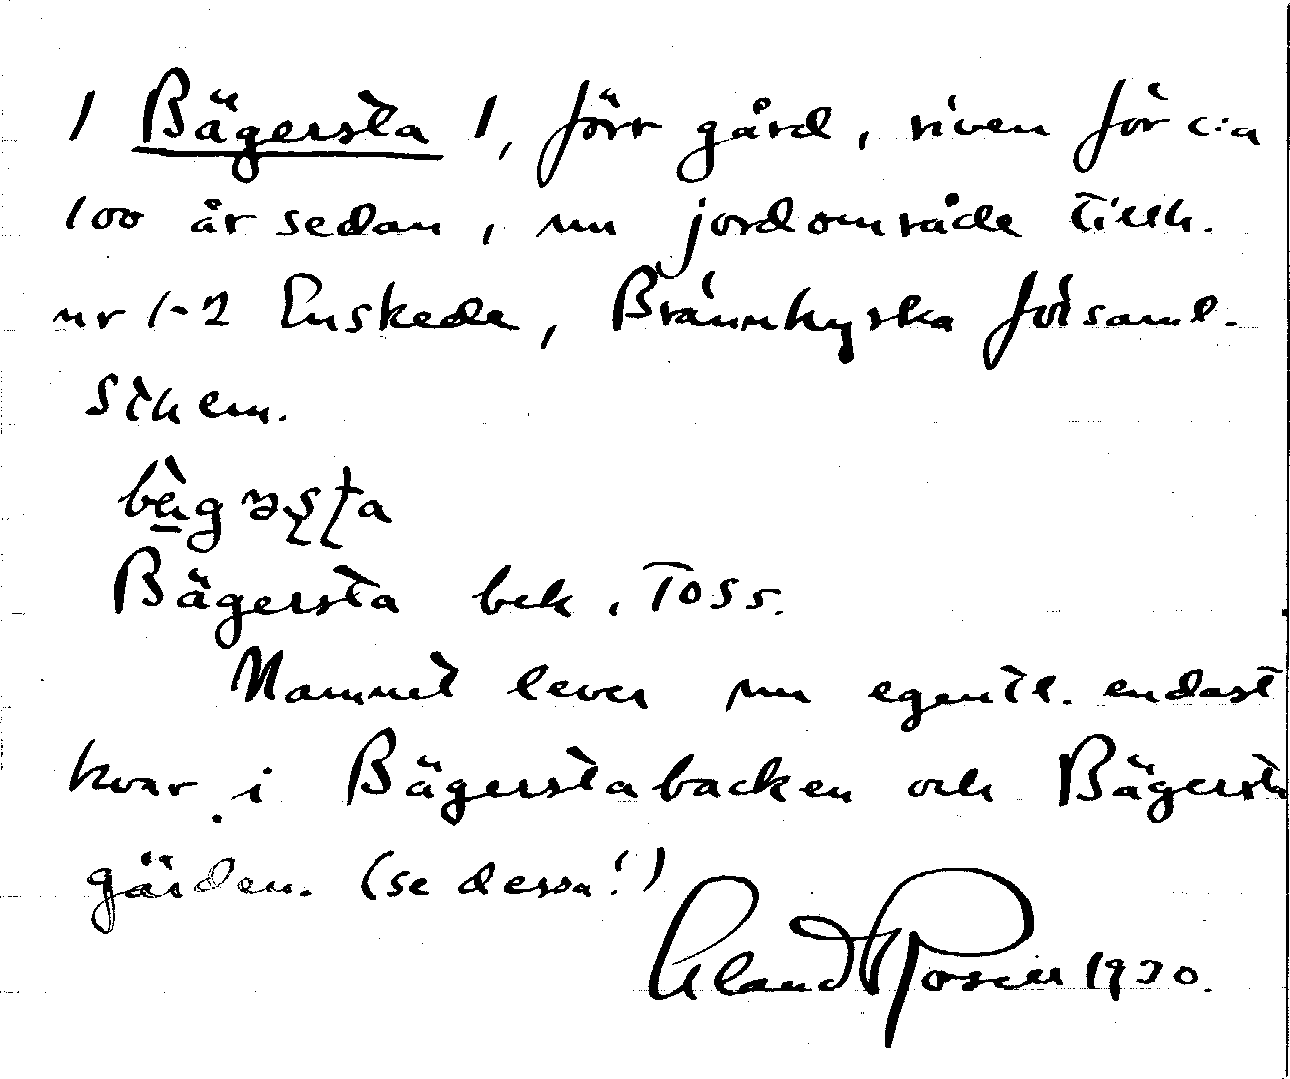 1 Bägersta 1, förr gård, riven för c:a
100 år sedan, nu jordområde tillh.
nr 1-2 Enskede, Brännkyrka församl.
Sthlm.
Bägersta bek. Toss.
Namnet lever nu egentl. endast
kvar i Bägerstabacken och Bägersta
gärden. (se dessa!)
1930.